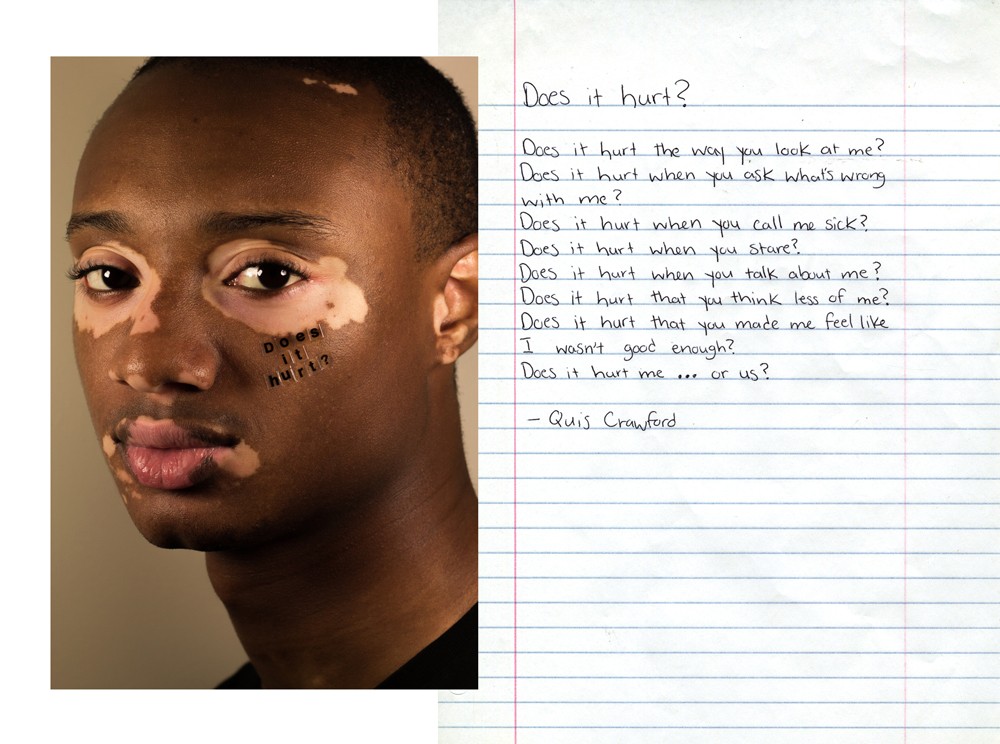 Does
it
hurt?
Does it hurt?
Does it hurt the way you look at me?
Does it hurt when you ask what's wrong
with me?
Does it hurt when you call me sick?
Does it hurt when you stare?
Does it hurt when you talk about me?
Does it hurt that you think less of me?
Does it hurt that you made me feel like
I wasn't good enough?
Does it hurt me ... or us?
- Quis Crawford